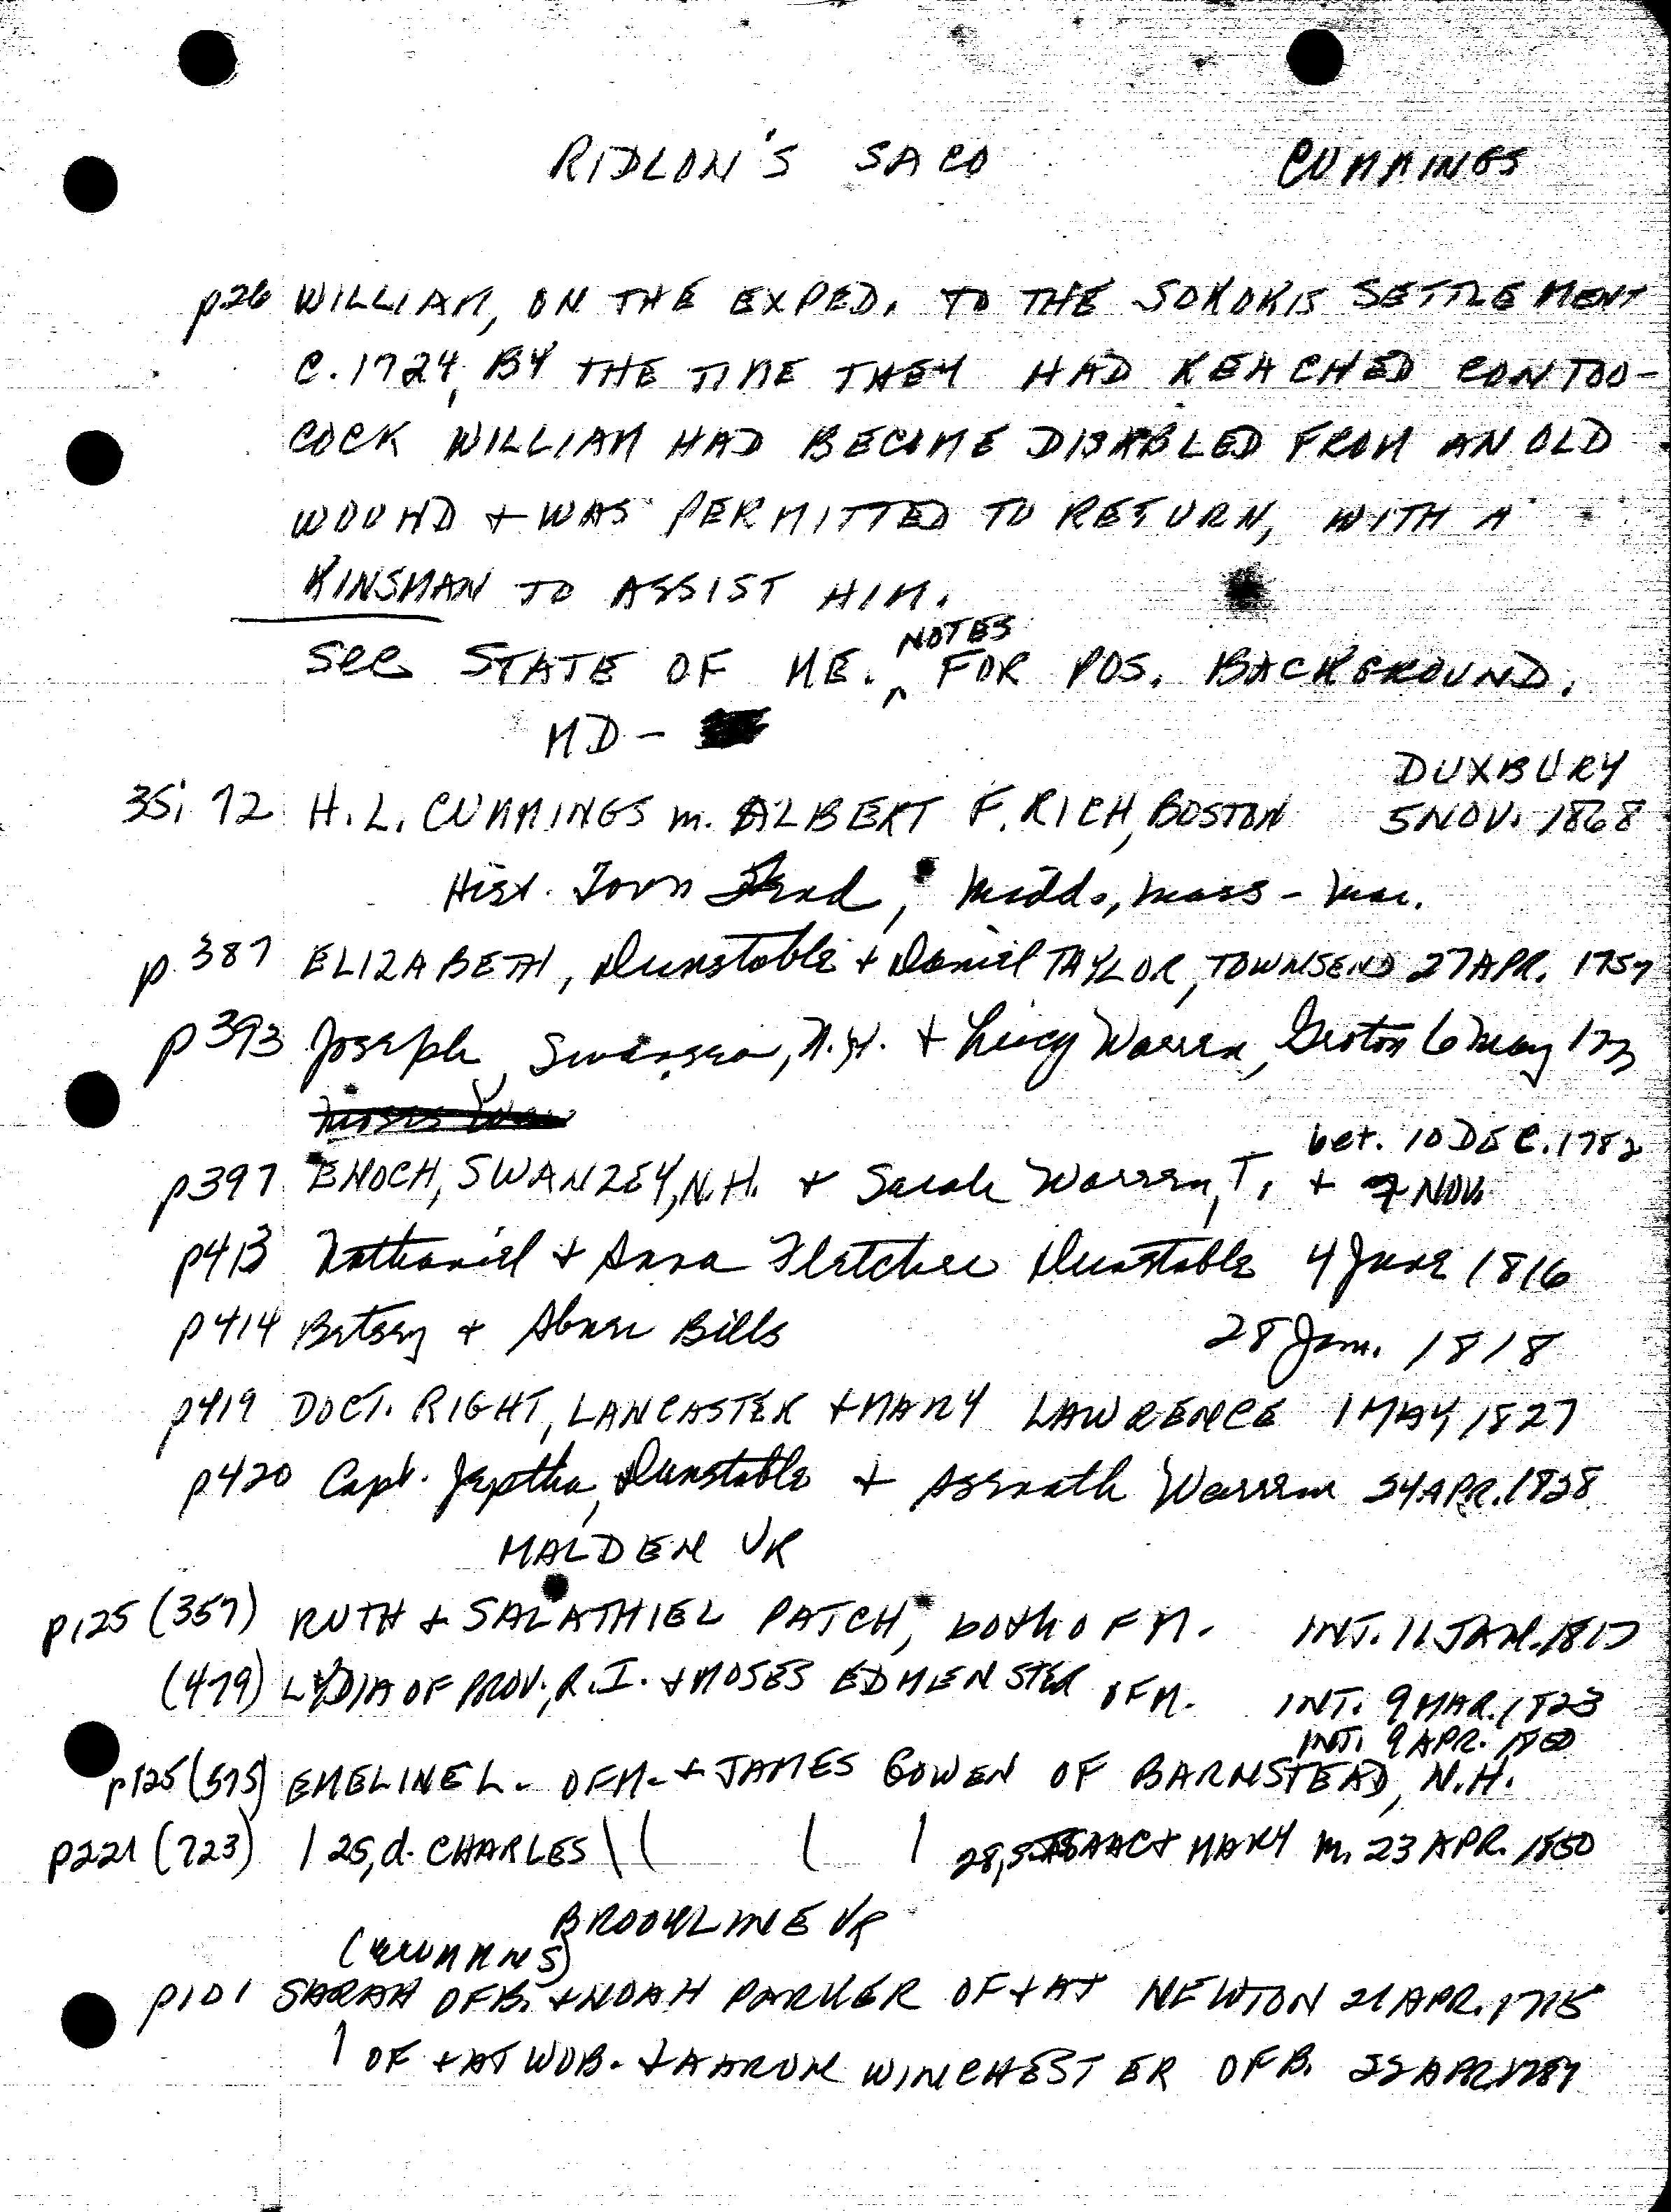 RIDLON'S SACO CUMMINGS
p26 WILLIAM, ON THE EXPED. TO THE SOKOKIS SETTLEMENT
C. 1724, BY THE TIME THEY HAD REACHED CONTOO-
COCK WILLIAM HAD BECOME DISABLED FROM AN OLD
WOUND + WAS PERMITTED TO RETURN, WITH A
KINSMAN TO ASSIST HIM.
See STATE OF ME. NOTES FOR POS. BACKGROUND.
MD -
DUXBURY
35: 72 H. L. CUMMINGS m. ALBERT F. RICH, BOSTON 5 NOV. 1868
Hist. Town, Midds, Mass - Mar.
p 387 ELIZABETH, Dunstable + Daniel TAYLOR, TOWNSEND 27 APR. 1757
p 393 Joseph, Swansea, N.H. + Lucy Warren, Groton 6 May
bet. 10 DEC. 1782
p397 ENOCH, SWANZEY, N.H. + Sarah Warren, T. + 7 NOV.
p413 Nathaniel + Anna Fletcher Dunstable 4 June 1816
p414 Betsey + Abner Bills 28 Jan. 1818
p419 DOCT. RIGHT, LANCASTER + MARY LAWRENCE 1 MAY 1827
p420 Capt. Jeptha, Dunstable + Asenath Warren 24 APR. 1828
MALDEN VR
p125 (357) RUTH + SALATHIEL PATCH, both OF M. INT. 11 JAN. 1817
(479) LYDIA OF PROV., R.I. + MOSES EDMENSTER OF M. INT. 9 MAR. 1823
INT. 9 APR. 1850
p125 (575) EMELINE L. OF M. + JAMES BOWEN OF BARNSTEAD, N.H.
p221 (723) 25, d. CHARLES 28, s. ISAAC + MARY m. 23 APR. 1850
BROOKLINE VR
(CUMMINS)
p101 SARAH OF B. + NOAH PARKER OF + AT NEWTON 21 APR. 1715
OF + AT WOB. + AARON WINCHESTER OF B. 22 APR. 1787